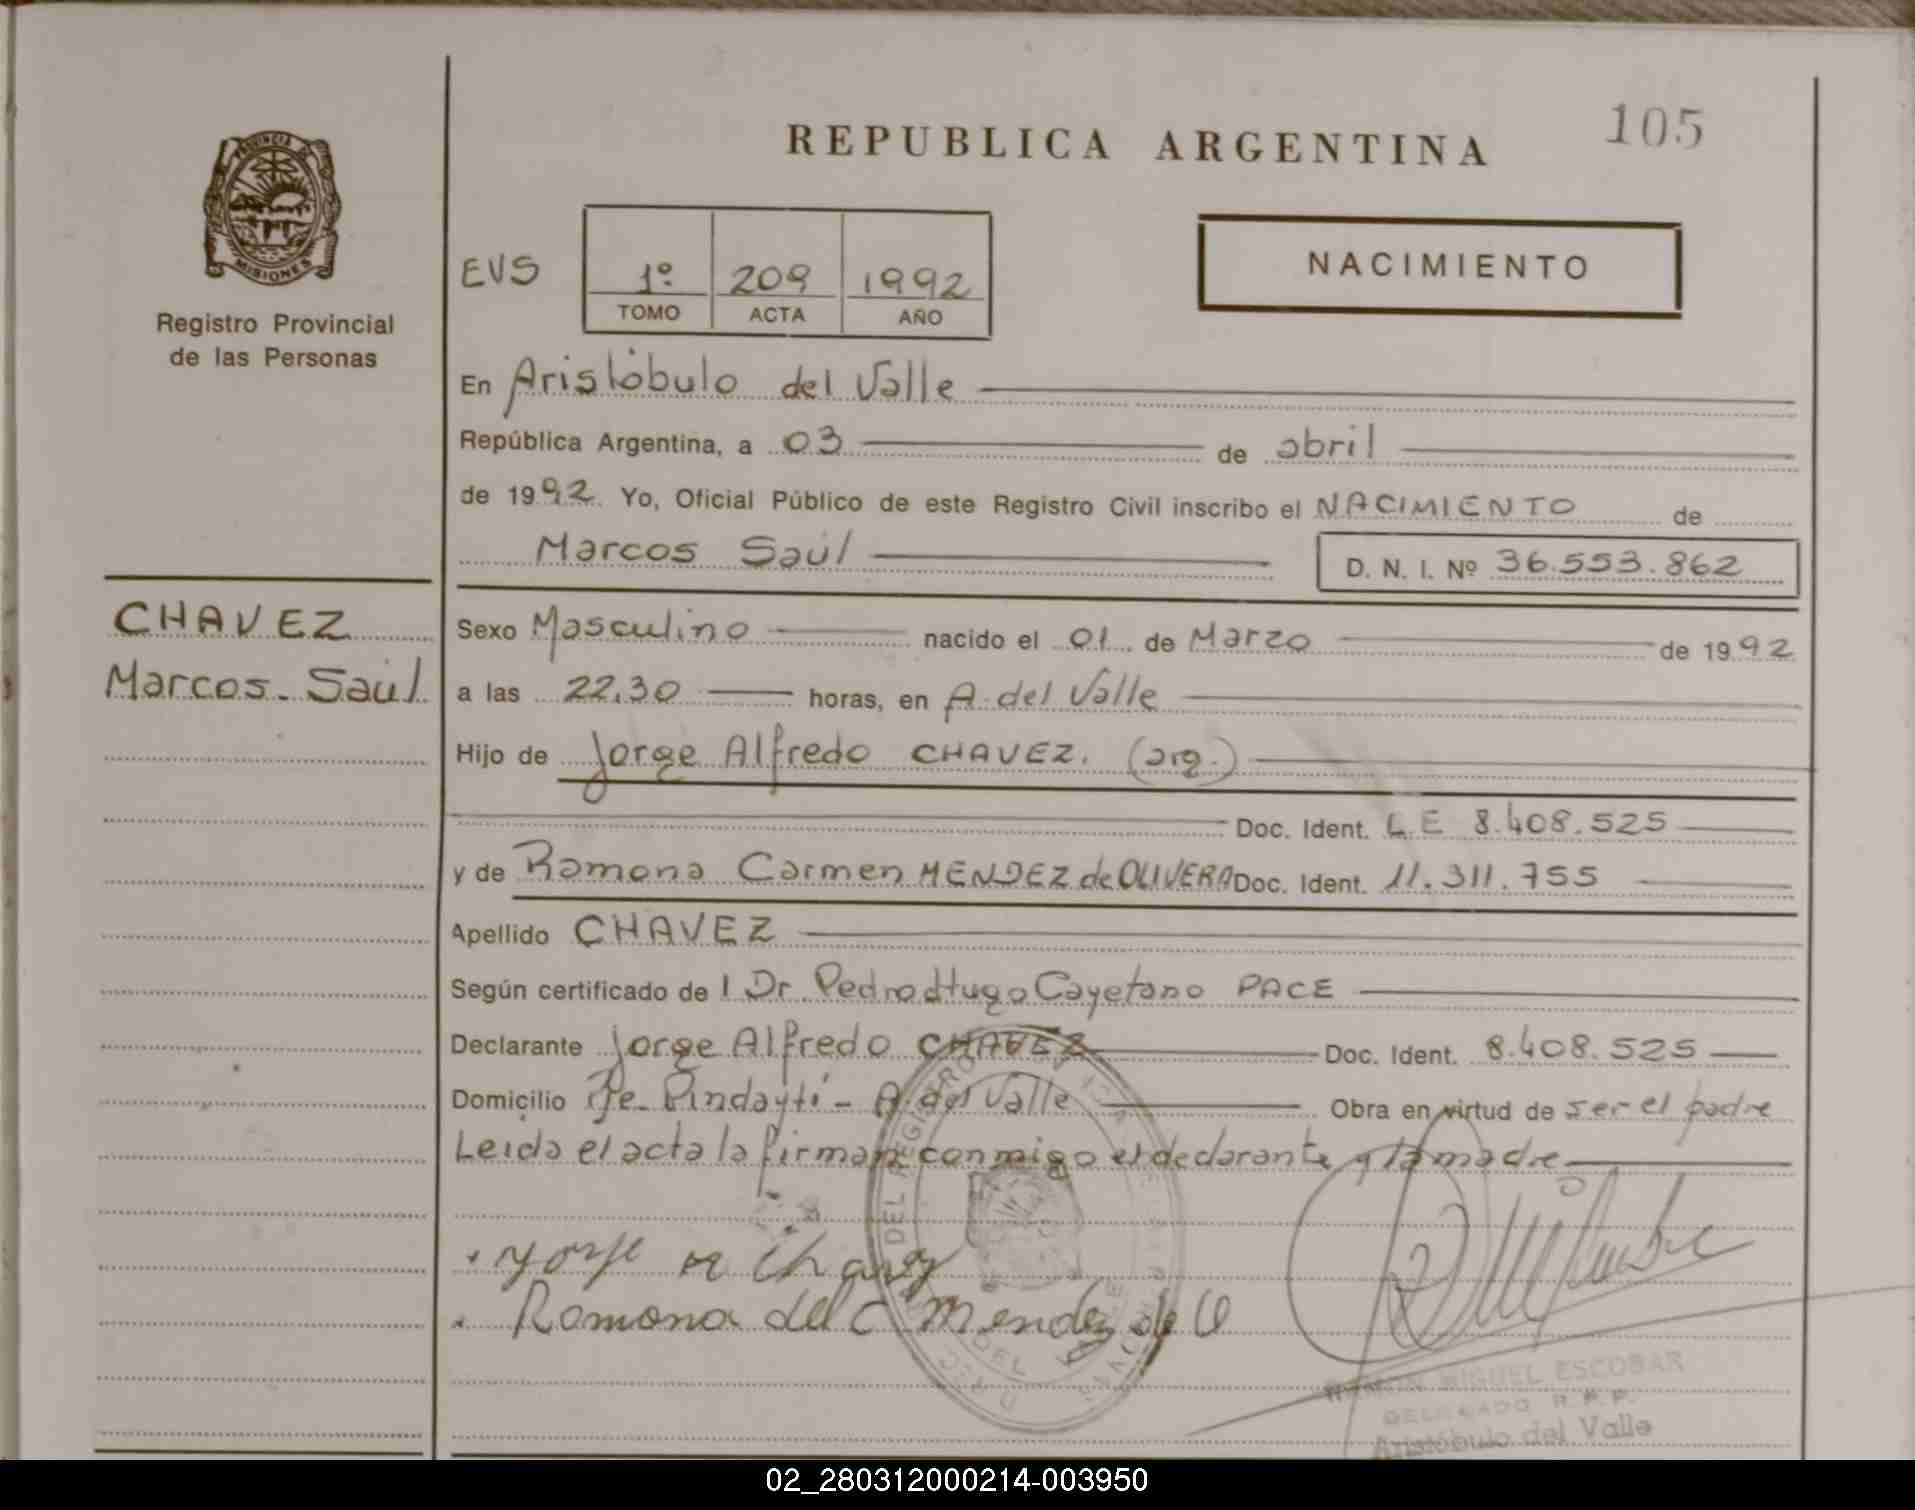 105
REPUBLICA ARGENTINA
PROVINCIA DE
MISIONES
Registro Provincial
de las Personas
EVS 1º 209 1992
TOMO ACTA AÑO
NACIMIENTO
En Aristóbulo del Valle
República Argentina, a 03 de abril
de 1992. Yo, Oficial Público de este Registro Civil inscribo el NACIMIENTO de
Marcos Saúl D. N. I. Nº 36.553.862
CHAVEZ
Marcos Saúl
Sexo Masculino nacido el 01 de Marzo de 1992
a las 22.30 horas, en A. del Valle
Hijo de Jorge Alfredo CHAVEZ. (arg.)
Doc. Ident. L.E 8.408.525
y de Ramona Carmen MENDEZ de OLIVERA Doc. Ident. 11.311.755
Apellido CHAVEZ
Según certificado de l Dr. Pedro Hugo Cayetano PACE
Declarante Jorge Alfredo CHAVEZ Doc. Ident. 8.408.525
Domicilio Pje. Pindaytí - A. del Valle Obra en virtud de ser el padre
Leida el acta la firman conmigo el declarante y la madre
Jorge A Chavez
Ramona del C Mendez de O
RAMON MIGUEL ESCOBAR
DELEGADO R.P.P.
Aristóbulo del Valle
02_280312000214-003950